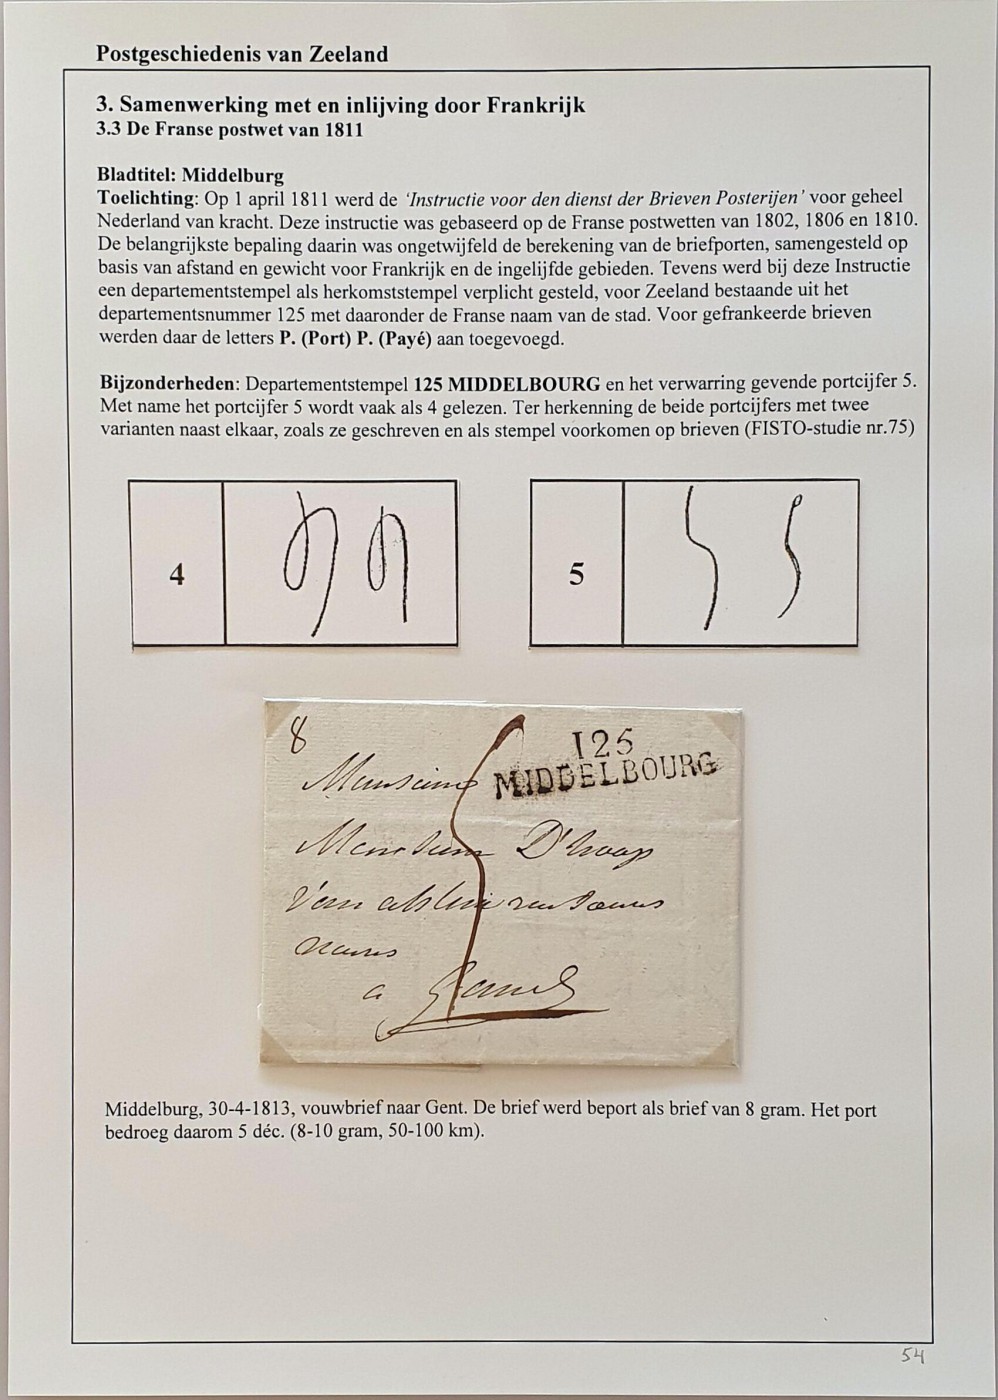 Postgeschiedenis van Zeeland
3. Samenwerking met en inlijving door Frankrijk
3.3 De Franse postwet van 1811
Bladtitel: Middelburg
Toelichting: Op 1 april 1811 werd de ‘Instructie voor den dienst der Brieven Posterijen’ voor geheel
Nederland van kracht. Deze instructie was gebaseerd op de Franse postwetten van 1802, 1806 en 1810.
De belangrijkste bepaling daarin was ongetwijfeld de berekening van de briefporten, samengesteld op
basis van afstand en gewicht voor Frankrijk en de ingelijfde gebieden. Tevens werd bij deze Instructie
een departementstempel als herkomststempel verplicht gesteld, voor Zeeland bestaande uit het
departementsnummer 125 met daaronder de Franse naam van de stad. Voor gefrankeerde brieven
werden daar de letters P. (Port) P. (Payé) aan toegevoegd.
Bijzonderheden: Departementstempel 125 MIDDELBOURG en het verwarring gevende portcijfer 5.
Met name het portcijfer 5 wordt vaak als 4 gelezen. Ter herkenning de beide portcijfers met twee
varianten naast elkaar, zoals ze geschreven en als stempel voorkomen op brieven (FISTO-studie nr.75)
4
5
8
125
MIDDELBOURG
5
Monsieur
Monsieur D'hoop
a Gand
Middelburg, 30-4-1813, vouwbrief naar Gent. De brief werd beport als brief van 8 gram. Het port
bedroeg daarom 5 déc. (8-10 gram, 50-100 km).
54